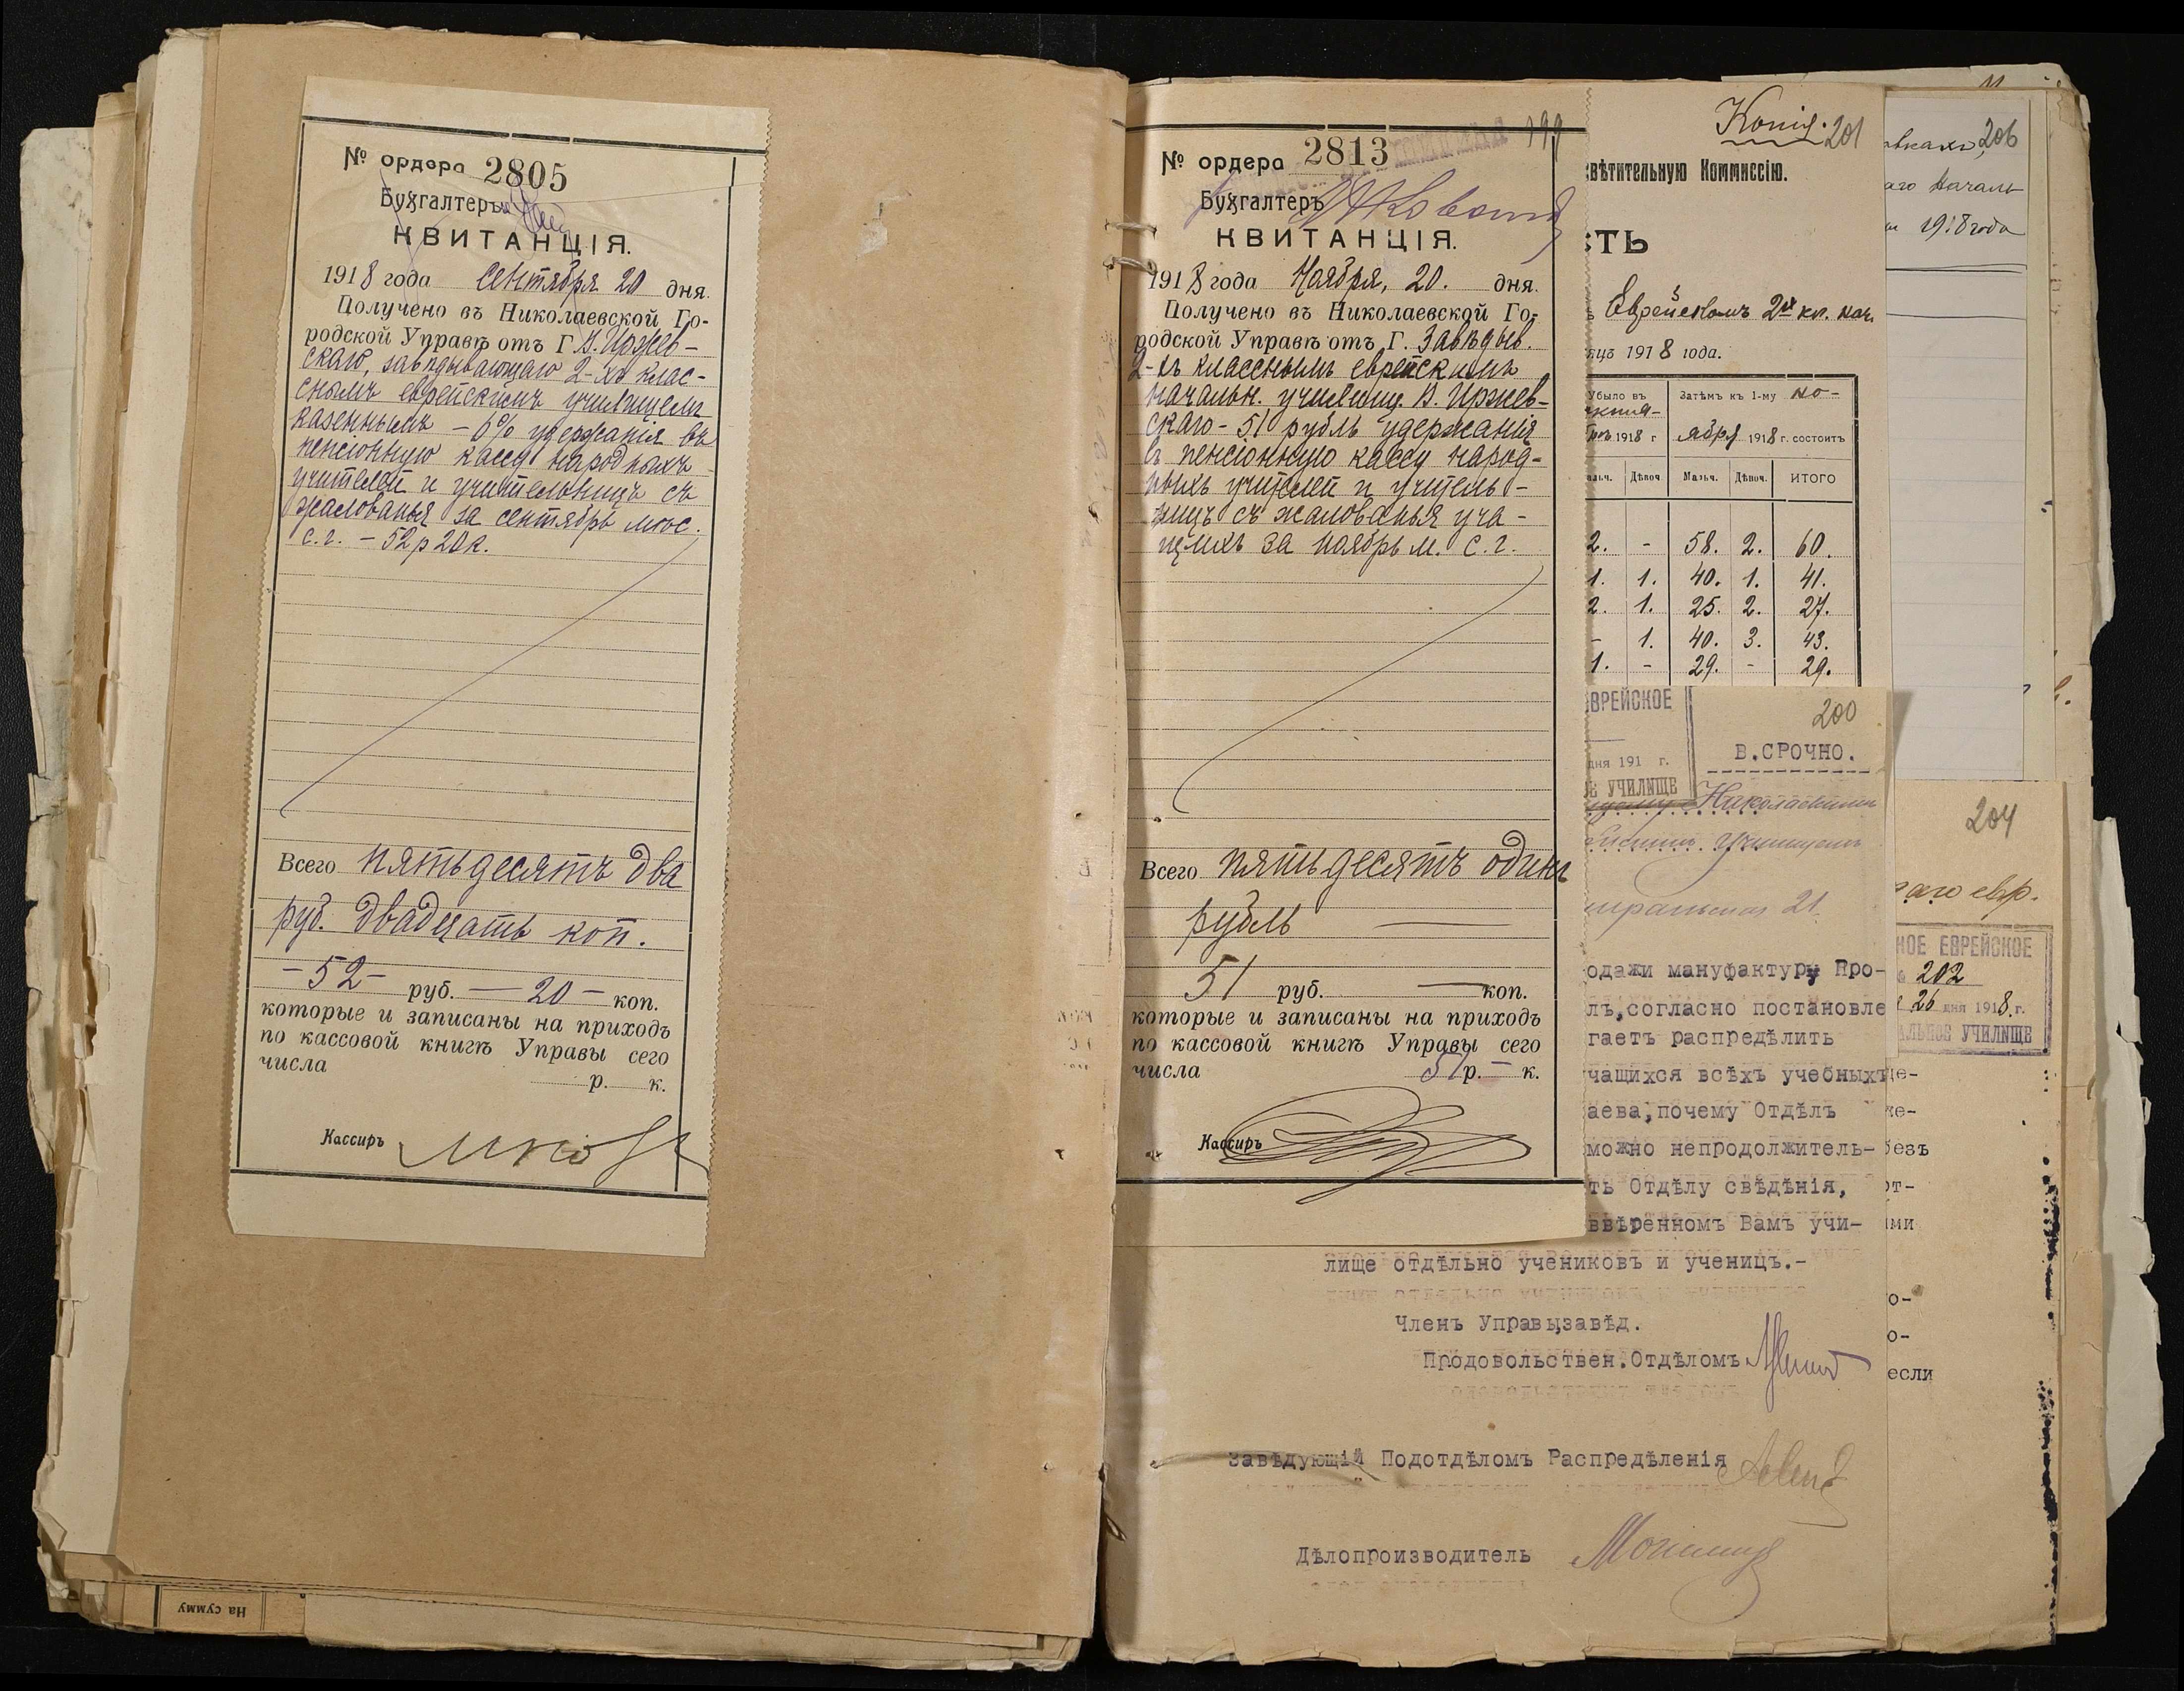 № ордера 2805
Бухгалтеръ
КВИТАНЦІЯ.
1918 года Сентября 20 дня.
Получено въ Николаевской Го-
родской Управѣ отъ Г В. Иржев-
скаго, завѣдывающаго 2-хъ клас-
снымъ еврейскимъ училищемъ
казеннымъ – 6% удержанія въ
пенсіонную кассу народныхъ
учителей и учительницъ съ
жалованья за сентябрь мѣс.
с. г. – 52 р 20 к.
Всего пятьдесятъ два
руб. двадцать коп.
– 52 – руб. – 20 – коп.
которые и записаны на приходъ
по кассовой книгѣ Управы сего
числа р. к.
Кассиръ
199
№ ордера 2813
Бухгалтеръ
КВИТАНЦІЯ.
1918 года Ноября, 20. дня.
Получено въ Николаевской Го-
родской Управѣ отъ Г. Завѣдыв.
2-хъ класснымъ еврейскимъ
начальн. училищ. В. Иржев-
скаго – 51 рубль удержанія
въ пенсіонную кассу народ-
ныхъ учителей и учитель-
ницъ съ жалованья уча-
щихъ за ноябрь м. с. г.
Всего пятьдесятъ одинъ
рубль —
51 руб. — коп.
которые и записаны на приходъ
по кассовой книгѣ Управы сего
числа 51 р. – к.
Кассиръ
Копія. 201
вѣтительную Коммиссію.
СТЬ
Еврейскомъ 2хъ кл. нач.
яцъ 1918 года.
Убыло въ Затѣмъ къ 1-му но-
1918 г ября 1918 г. состоитъ
альч. Дѣвоч Мальч. Дѣвоч. ИТОГО
2. - 58. 2. 60.
1. 1. 40. 1. 41.
2. 1. 25. 2. 27.
- 1. 40. 3. 43.
1. - 29. - 29.
ЕВРЕЙСКОЕ
дня 191 г.
Е УЧИЛИЩЕ
200
В.СРОЧНО.
Николаевскимъ
21.
одажи мануфактуру Про-
лъ,согласно постановле
гаетъ распредѣлить
чащихся всѣхъ учебныхъ
аева,почему Отдѣлъ
можно непродолжитель-
ть Отдѣлу свѣдѣнія,
ввѣренномъ Вамъ учи-
лище отдѣльно учениковъ и ученицъ.-
Членъ Управы,завѣд.
Продовольствен.Отдѣломъ
Завѣдующій Подотдѣломъ Распредѣленія
Дѣлопроизводитель
206
аго началь
1918 года
204
аго евр.
КОЕ ЕВРЕЙСКОЕ
№ 202
26 дня 1918 г.
АЛЬНОЕ УЧИЛИЩЕ
де-
же-
безъ
от-
ими
о-
о-
если
На сумму